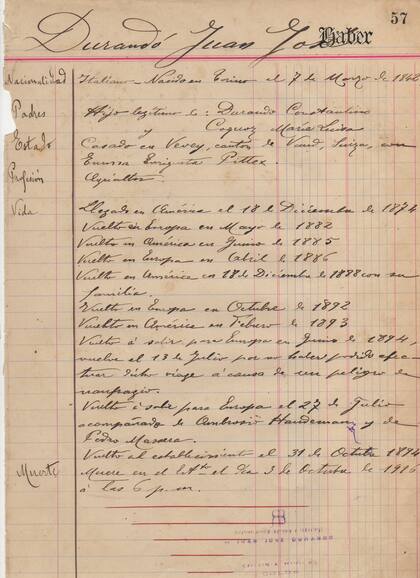 57
Durandó Juan José
Haber
Nacionalidad Italiano - Nacido en Torino el 7 de Marzo de 1846
Padres Hijo legitimo de: Durando Constantino
y María Luisa
Estado Casado en Vevey, cantón de Vaud, Suiza, con
Emma Enriqueta Pittex.
Profesión Agricultor.
Vida Llegado en América el 18 de Diciembre de 1874
Vuelto en Europa en Mayo de 1882
Vuelto en América en Junio de 1885
Vuelto en Europa en Abril de 1886
Vuelto en América en 18 de Diciembre de 1888 con su
familia.
Vuelto en Europa en Octubre de 1892
Vuelto en América en Febrero de 1893
Vuelto á salir para Europa en Junio de 1894,
vuelve el 13 de Julio por no haber podido efec-
tuar dicho viage á causa de un peligro de
naufragio.
Vuelto á salir para Europa el 27 de Julio
acompañado de Ambrosio y de
Pedro Massera.
Vuelto al establecimiento el 31 de Octubre 1894
Muerte Muere en el el dia 3 de Octubre de 1916
á las 6 p.m.